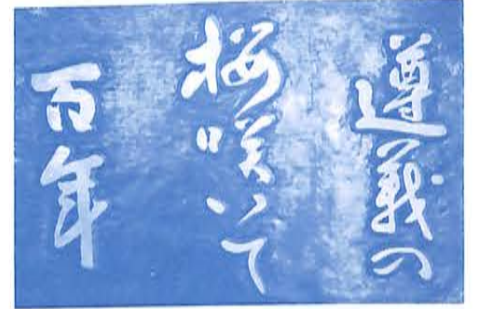 遵義の
桜咲いて
百年